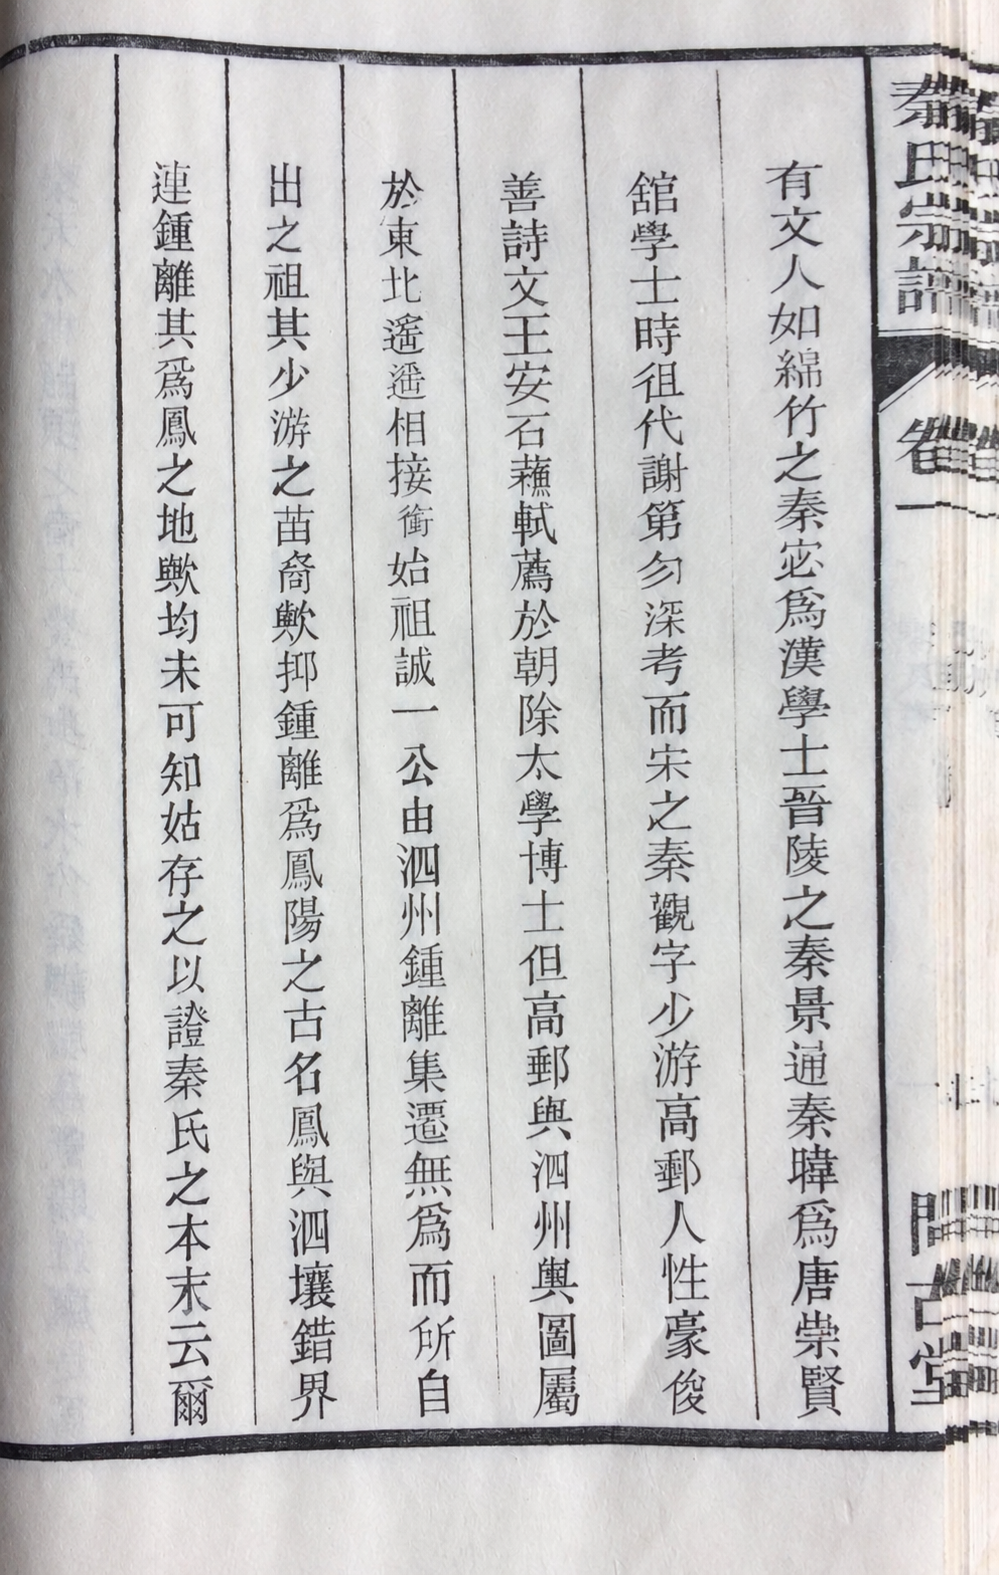 秦氏宗譜
卷一
有文人如綿竹之秦宓爲漢學士晉陵之秦景通秦暐爲唐崇賢
舘學士時徂代謝第勿深考而宋之秦觀字少游高郵人性豪俊
善詩文王安石蘓軾薦於朝除太學博士但高郵與泗州輿圖屬
於東北遙遥相接衝始祖誠一公由泗州鍾離集遷無爲而所自
出之祖其少游之苗裔歟抑鍾離爲鳳陽之古名鳳與泗壤錯界
連鍾離其爲鳳之地歟均未可知姑存之以證秦氏之本末云爾
古堂